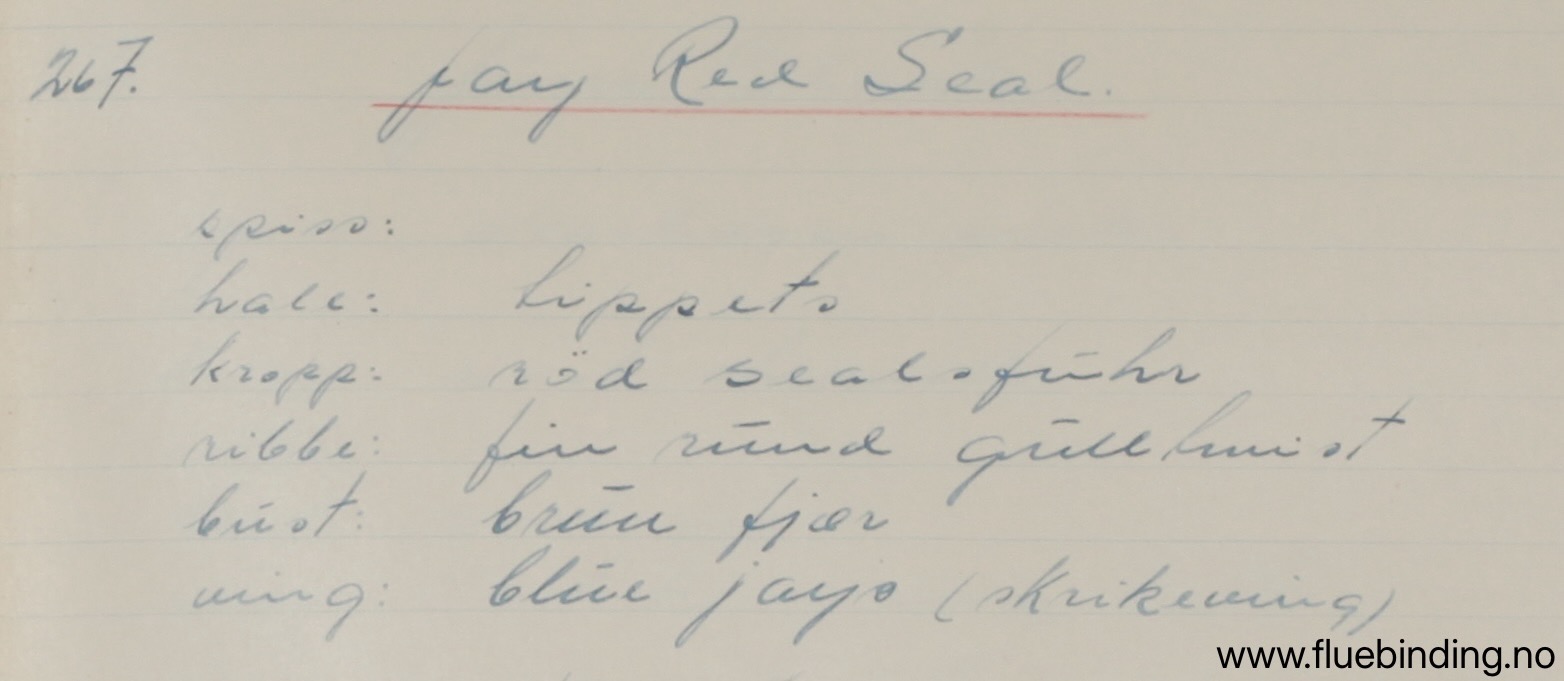 267. Jay Red Seal.
spiss:
hale: tippets
kropp: röd sealsfuhr
ribbe: fin rund gulltwist
bust: brun fjær
ving: blue jays (skrikeving)
www.fluebinding.no